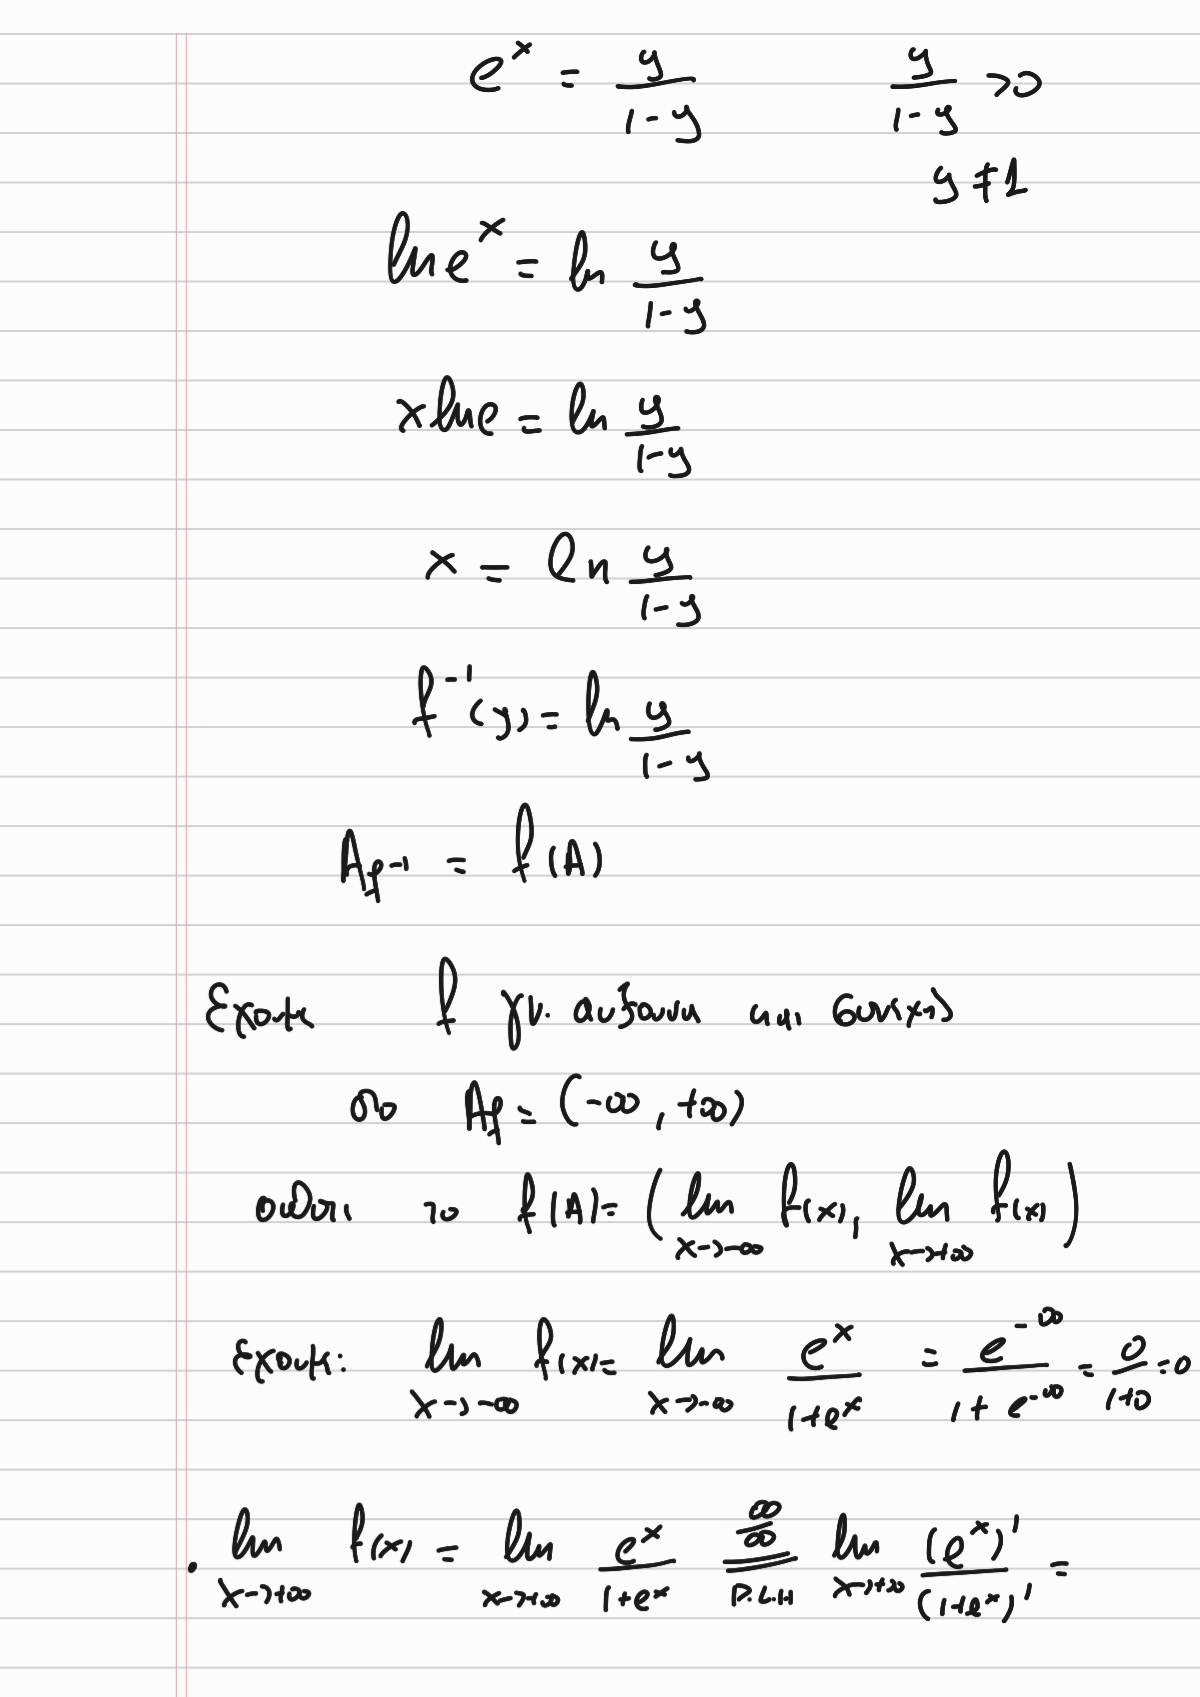 e^x = y/(1-y)   y/(1-y) >0
y ≠ 1
ln e^x = ln y/(1-y)
x ln e = ln y/(1-y)
x = ln y/(1-y)
f^-1(y) = ln y/(1-y)
A_f^-1 = f(A)
Έχουμε f γν. αύξουσα και συνεχής
στο A_f = (-∞, +∞)
οπότε το f(A) = (lim x→-∞ f(x), lim x→+∞ f(x))
έχουμε: lim x→-∞ f(x) = lim x→-∞ e^x/(1+e^x) = e^-∞/(1+e^-∞) = 0/(1+0) = 0
• lim x→+∞ f(x) = lim x→+∞ e^x/(1+e^x) =(∞/∞, D.L.H) lim x→+∞ (e^x)'/(1+e^x)' =